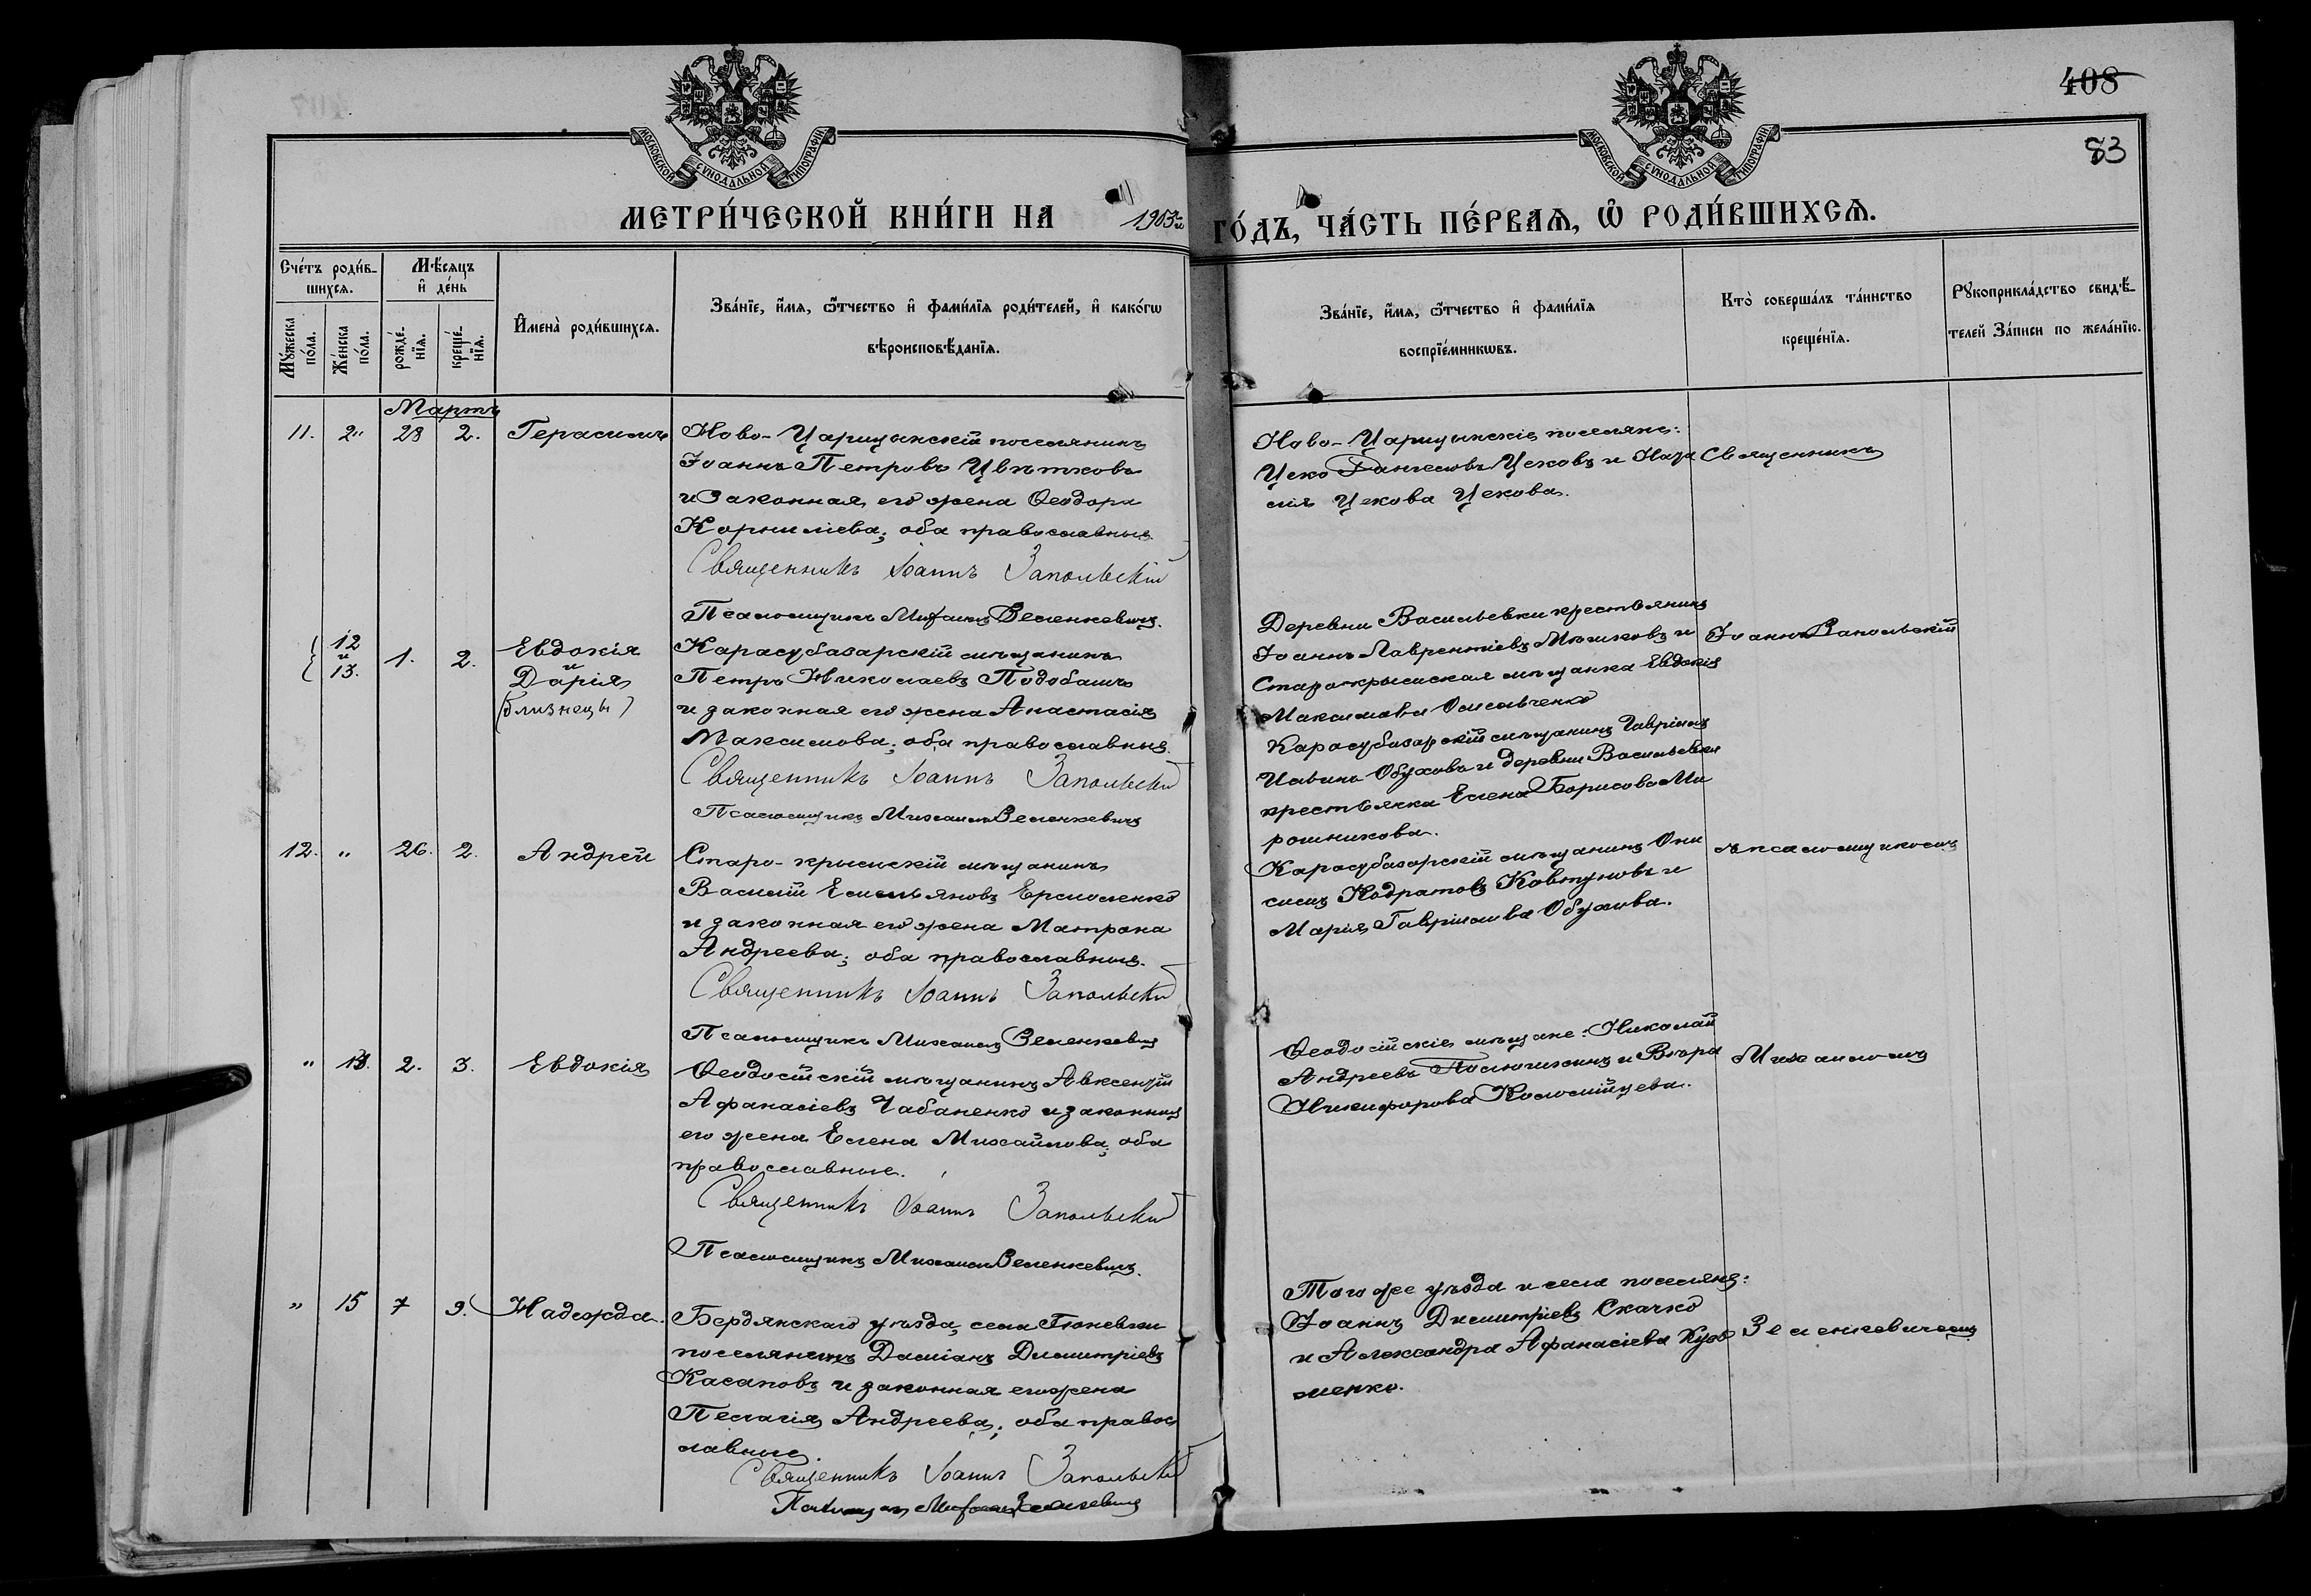 408
83
МОСКОВСКОЙ СУНОДАЛЬНОЙ ТИПОГРАФІИ
МОСКОВСКОЙ СУНОДАЛЬНОЙ ТИПОГРАФІИ
МЕТРИ́ЧЕСКОЙ КНИ́ГИ НА 1903й ГО́ДЪ, ЧА́СТЬ ПЕ́РВАѦ, Ѡ РОДИ́ВШИХСѦ.
Сче́тъ роди́в-
шихсѧ.
Мꙋ́жеска
по́ла.
Же́нска
по́ла.
Мѣ́сѧцъ
и҆ де́нь
рожде́-
нїѧ.
креще́-
нїѧ.
И҆мена̀ роди́вшихсѧ.
Зва́нїе, и҆́мѧ, ѻ҆́тчество и҆ фами́лїѧ роди́телей, и҆ како́гѡ
вѣроисповѣ́данїѧ.
Зва́нїе, и҆́мѧ, ѻ҆́тчество и҆ фами́лїѧ
воспрїе́мникѡвъ.
Кто̀ соверша́лъ та́инство
креще́нїѧ.
Рꙋкоприкла́дство свидѣ́-
телей За́писи по жела́нїю.
Мартъ
11. 2" 28 2. Герасимъ
Ново-Царицынскій поселянинъ
Іоаннъ Петровъ Цвѣтковъ
и законная его жена Ѳеодора
Корниліева; оба православные.
Священникъ Іоаннъ Запольскій
Псаломщикъ Михаилъ Зеленкевичъ.
Ново-Царицынскіе поселяне:
Цеко Цековъ и Ната
лія Цекова Цекова.
Священникъ
12 и 13. 1. 2. Евдокія
и
Дарія
(близнецы)
Карасубазарскій мѣщанинъ
Петръ Николаевъ
и законная его жена Анастасія
Максимова; оба православные.
Священникъ Іоаннъ Запольскій
Псаломщикъ Михаилъ Зеленкевичъ
Деревни Васильевки крестьянинъ
Іоаннъ Лаврентіевъ и
Старокрымская мѣщанка Евдокія
Максимова
Карасубазарскій мѣщанинъ Гавріилъ
Обуховъ и деревни Васильевки
крестьянка Елена Борисова Ми
рошникова.
Іоаннъ Запольскій
12. " 26. 2. Андрей
Старо-крымскій мѣщанинъ
Василій Емельяновъ Ермоленко
и законная его жена Матрона
Андреева; оба православные.
Священникъ Іоаннъ Запольскій
Псаломщикъ Михаилъ Зеленкевичъ
Карасубазарскій мѣщанинъ Они
симъ Кодратовъ Ковтуновъ и
Марія Гавріилова Обухова.
съ псаломщикомъ
" 2. 3. Евдокія
Ѳеодосійскій мѣщанинъ Авксентій
Афанасіевъ Чабаненко и законная
его жена Елена Михайлова; оба
православные.
Священникъ Іоаннъ Запольскій
Псаломщикъ Михаилъ Зеленкевичъ.
Ѳеодосійскіе мѣщане: Николай
Андреевъ и Вѣра
Никифорова Коломійцева.
Михаиломъ
" 15 7 9. Надежда.
Бердянскаго уѣзда, села
поселянинъ Даміанъ Димитріевъ
Касаповъ и законная его жена
Пелагія Андреева; оба правос
лавные.
Священникъ Іоаннъ Запольскій
Псаломщикъ Михаилъ Зеленкевичъ
Того же уѣзда и села поселяне:
Іоаннъ Димитріевъ Скачко
и Александра Афанасіева Кузь
менко.
Зеленкевичемъ